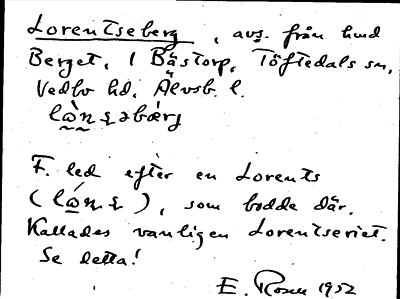 Lorentseberg, avs. från hmd
Berget, i Båstorp, Töftedals sn,
Vedbo hd. Älvsb. l.
F. led efter en Lorents
som bodde där.
Kallades vanligen Lorentseriet.
Se detta!
E. Rosen 1952